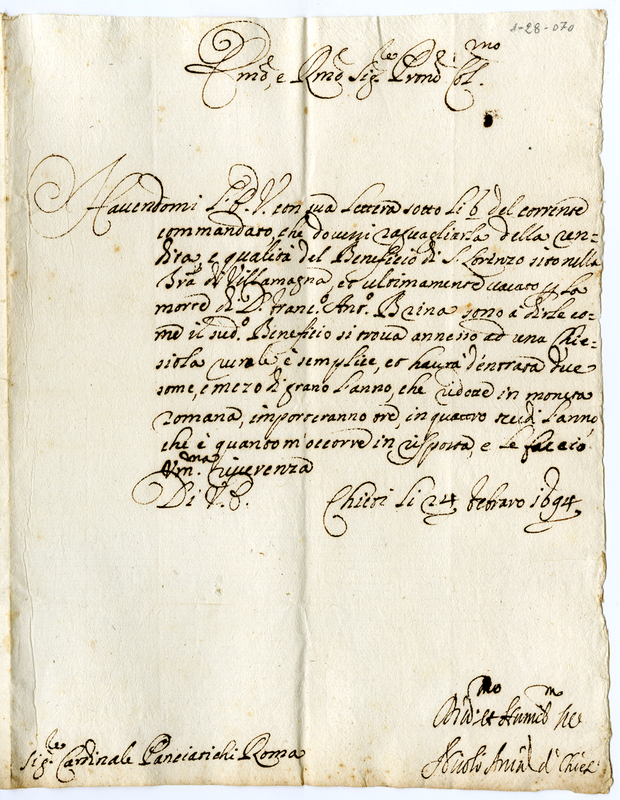 1-28-070
Em.o, e Rmo Sig.re Prone Col.mo
Havendomi l'E. V. con sua lettera sotto li 6 del corrente
commandato, che dovessi ragvagliarla della ren=
dita, e qualità del Beneficio di S. Lorenzo sito nella
Trā di Villamagna, et ultimamente vacato p la
morte di D. Franc.o Ant.o Baina sono a dirle co=
me il sud.o Beneficio si trova annesso ad una Chie=
siola rurale è semplice, et haurà d'entrata due
some, e mezo di grano l'anno, che ridotte in moneta
romana, importeranno tre, in quattro scudi l'anno
che è quanto m'occorre in risposta, e le faccio
Um.ma riverenza
Di V. E. Chieti li 24 febraro 1694
Sig.re Cardinale Panciatichi Roma
et Humil.mo
d Chieti